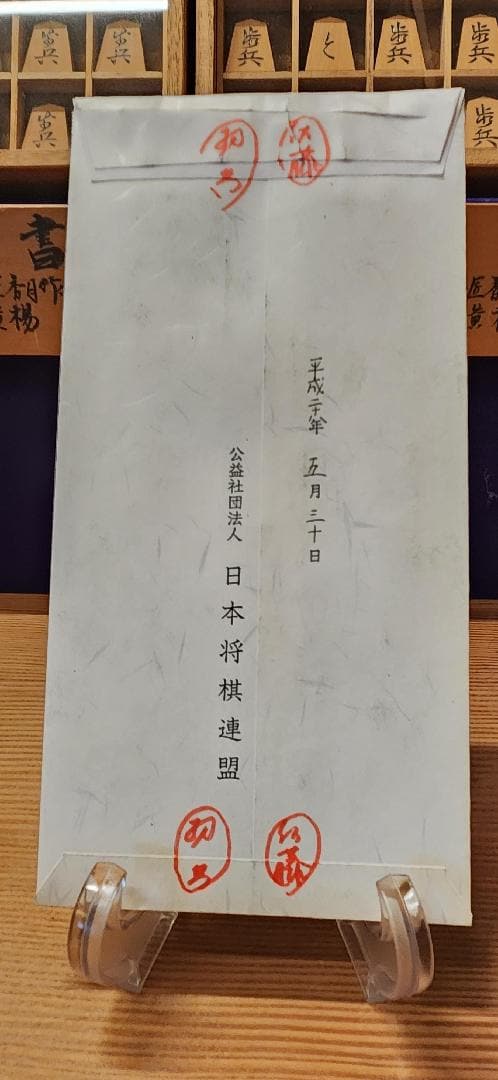 歩兵
歩兵
歩兵
と
歩兵
歩兵
歩兵
歩兵
佐藤
羽生
書
香月作
黄楊
匠
黄
平成二十年 五月三十日
公益社団法人 日本将棋連盟
佐藤
羽生